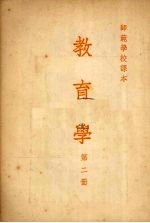 師範學校課本
教育學
第二册